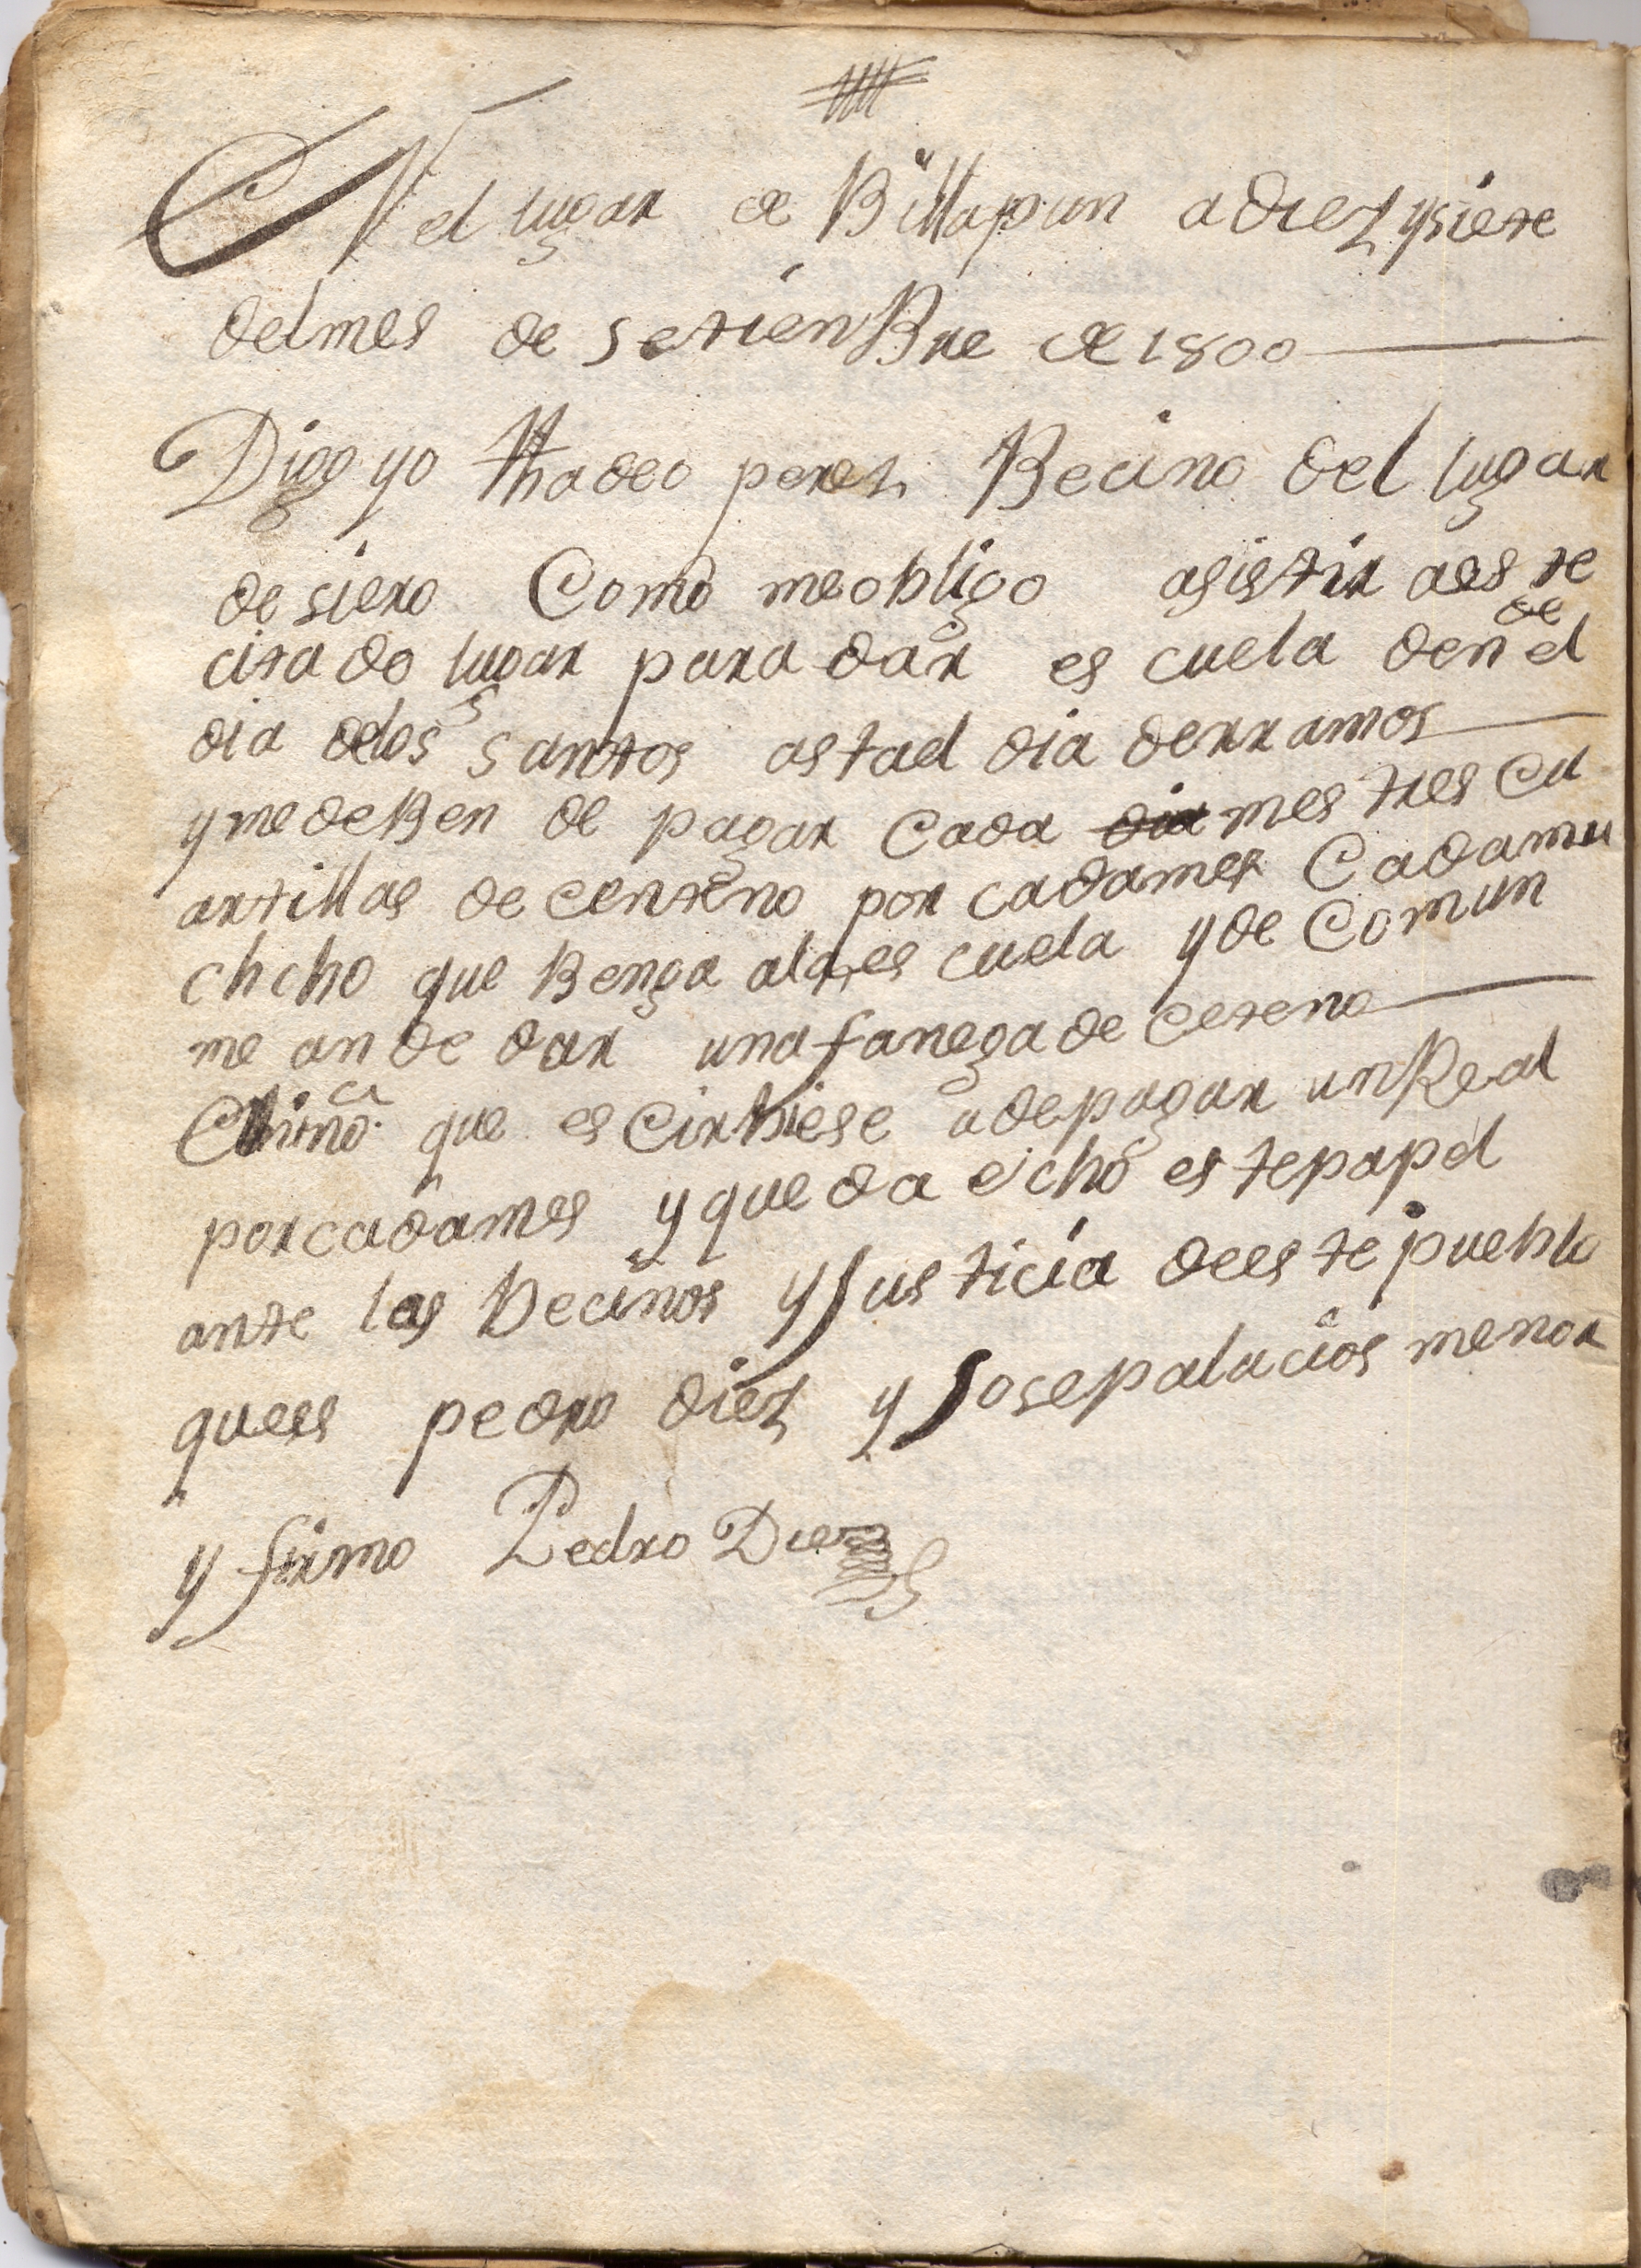 EN el lugar de Billapun a diez ysiete
delmes de setienBre de 1800
Digo yo thadeo perez Becino del lugar
de siero Como meobligo asistir aeste
citado lugar para dar escuela den de el
dia delos santos astael dia derramos
ymedeBen de pagar Cada dia mes tres Cu
artillas de centeno por cadames Cadamu
chcho que Benga ala escuela y de Comun
me an de dar una fanega de ceteno
que esCirbiese adepagar unReal
porcadames y queda echo estepapel
ante los becinos yJusticia deeste pueblo
quees pedro diez y Josepalacios menor
y firmo Pedro Diez